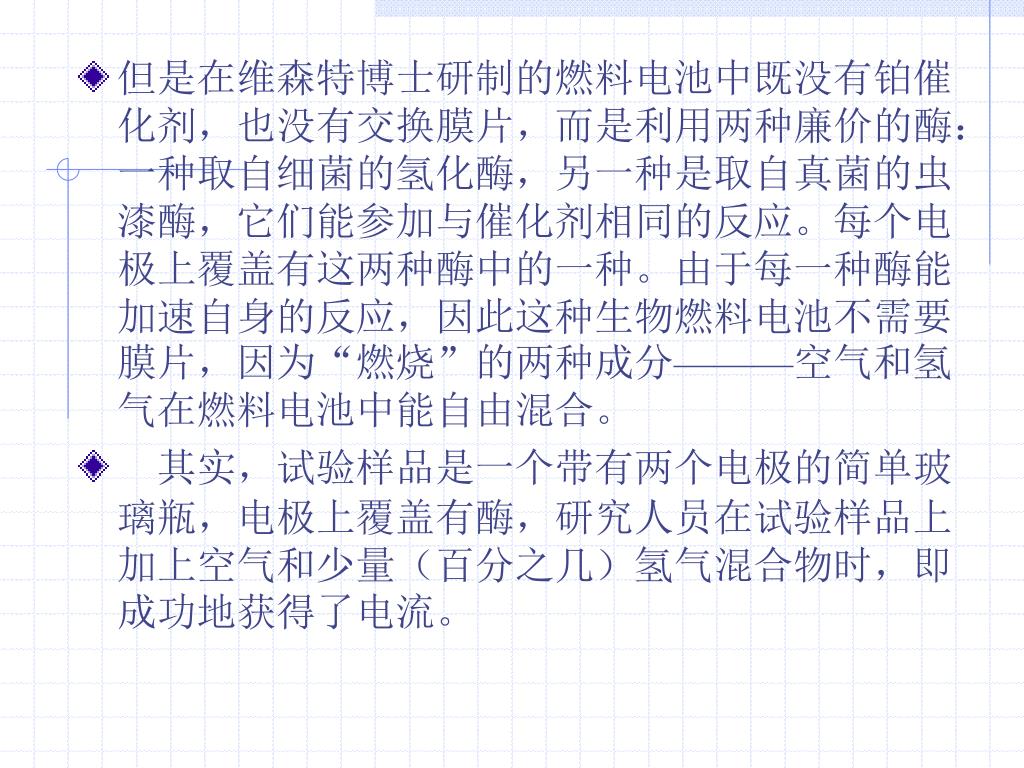 但是在维森特博士研制的燃料电池中既没有铂催
化剂，也没有交换膜片，而是利用两种廉价的酶：
一种取自细菌的氢化酶，另一种是取自真菌的虫
漆酶，它们能参加与催化剂相同的反应。每个电
极上覆盖有这两种酶中的一种。由于每一种酶能
加速自身的反应，因此这种生物燃料电池不需要
膜片，因为“燃烧”的两种成分———空气和氢
气在燃料电池中能自由混合。
其实，试验样品是一个带有两个电极的简单玻
璃瓶，电极上覆盖有酶，研究人员在试验样品上
加上空气和少量（百分之几）氢气混合物时，即
成功地获得了电流。